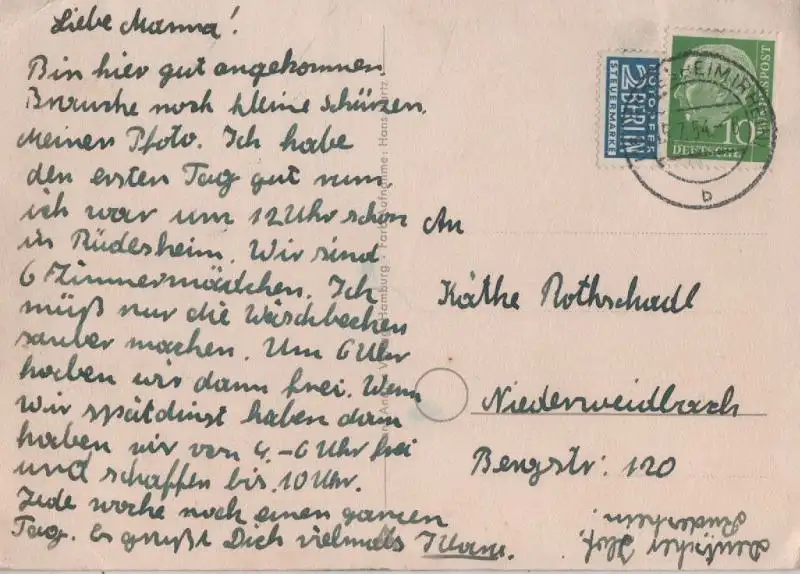 Liebe Mamma!
Bin hier gut angekommen.
Brauche noch kleine Schürzen.
Meinen Pfoto. Ich habe
den ersten Tag gut rum.
ich war um 12 Uhr schon
in Rüdesheim. Wir sind
6 Zimmermädchen. Ich
müß nur die Wäschbecken
sauber machen. Um 6 Uhr
haben wir dann frei. Wenn
wir spätdinst haben dann
haben wir von 4.-6 Uhr frei
und schaffen bis 10 Uhr.
Jede woche noch einen ganzen
Tag. Es grüßt Dich vielmals
An
Käthe Rothschadl
Niederweidbach
Bergstr: 120
Deutscher Hof.
Rüdesheim.
Hamburg · Farbaufnahme: Hans
NOTOPFER
2 BERLIN
STEUERMARKE
10
DEUTSCHE
POST
HEIM (RHEIN)
7.54
b